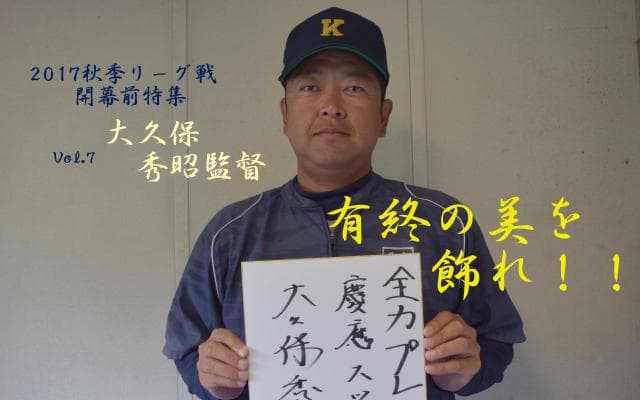 K
2017秋季リーグ戦
開幕前特集
Vol.7
大久保
秀昭監督
有終の美を
飾れ！！
全力プレ
慶應スポ
大久保秀